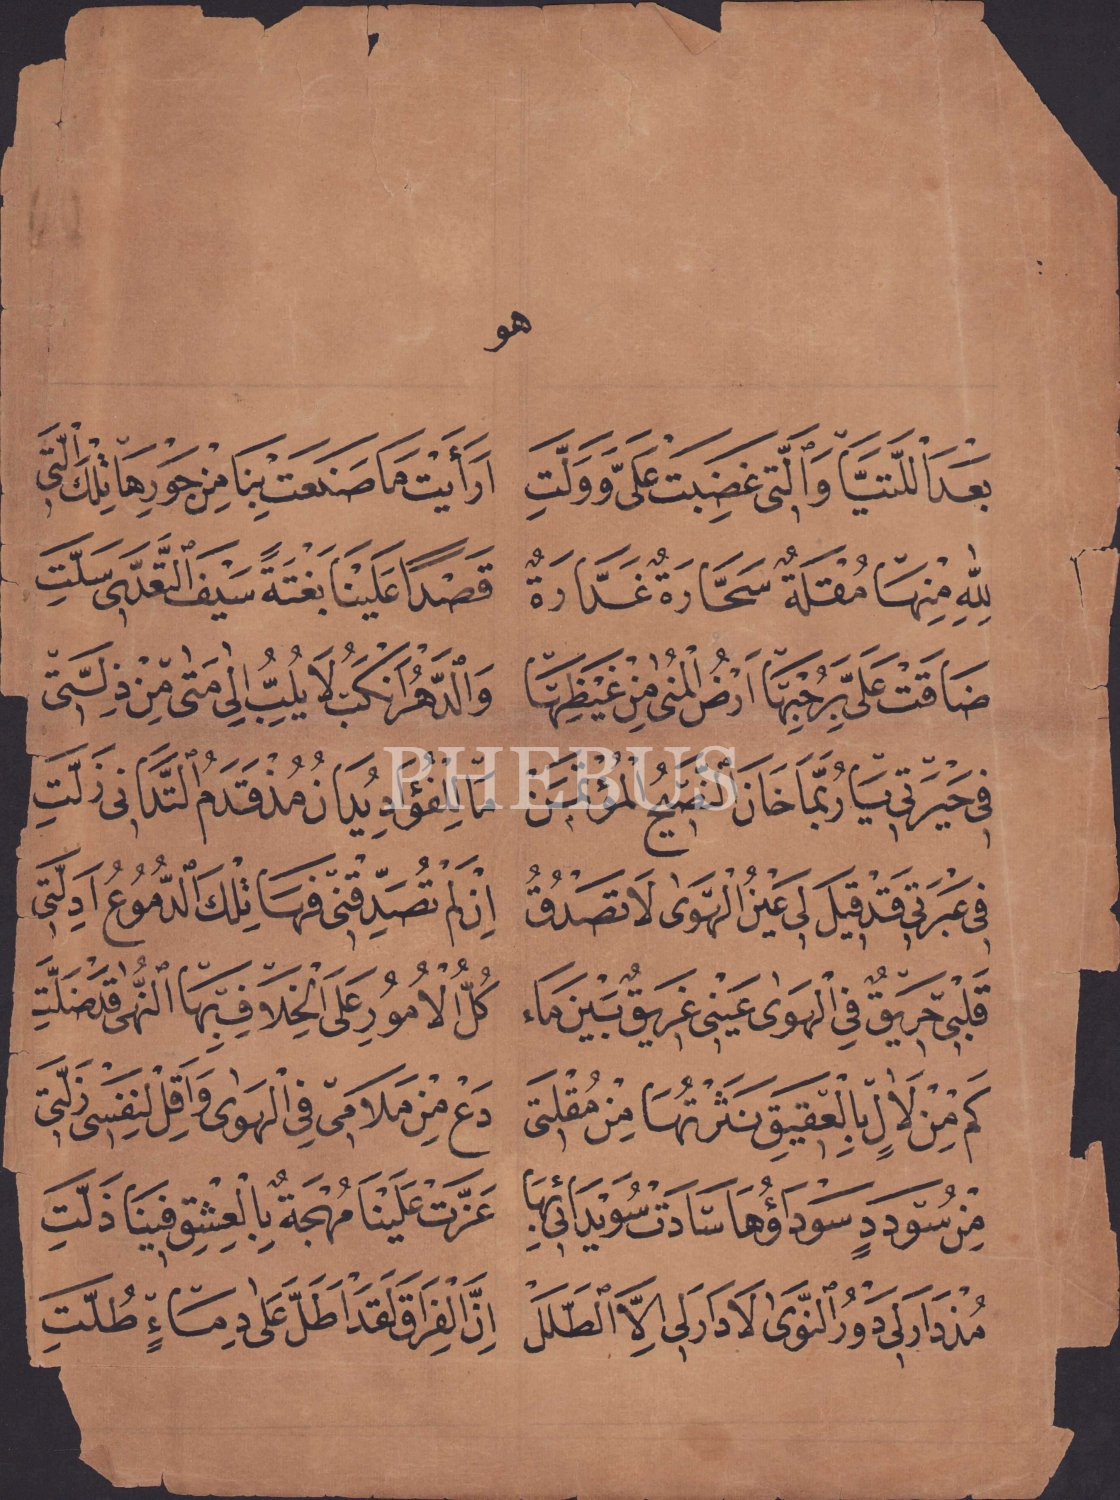 هو
بَعْدَ اللَّتَيَّا وَالَّتِي غَضِبَتْ عَلَيَّ وَوَلَّتِ اَرَأَيْتَ مَا صَنَعَتْ بِنَا مِنْ جَوْرِهَا تِلْكَ الَّتِي
لِلّٰهِ مِنْهَا مُقْلَةٌ سَحَّارَةٌ غَدَّارَةٌ قَصْدًا عَلَيْنَا بَغْتَةً سَيْفَ التَّعَدّٰى سَلَّتِ
ضَاقَتْ عَلَيَّ بِرُحْبِهَا اَرْضُ الْمُنٰى مِنْ غَيْظِهَا وَالدَّهْرُ اَنْكَبُ لَا يُلِبُّ اِلٰى مَتٰى مِنْ ذِلَّتِي
فِي حَيْرَتِي يَا رُبَّمَا خَانَ النَّصِيحُ الْمُؤْتَمَنْ مَا لِلْفُؤَادِ يُدَانُ مُذْ قَدَمُ التَّدَانِي زَلَّتِ
فِي عَبْرَتِي قَدْ قِيلَ لِي عَيْنُ الْهَوٰى لَا تَصْدُقُ اِنْ لَمْ تُصَدِّقْنِي فَهَا تِلْكَ الدُّمُوعُ اَدِلَّتِي
قَلْبِي حَرِيقٌ فِي الْهَوٰى عَيْنِي غَرِيقٌ بَيْنَ مَاء كُلُّ الْاُمُورِ عَلَى الْخِلَافِ بِهَا النُّهٰى قَدْ ضَلَّتِ
كَمْ مِنْ لَاٰلٍ بِالْعَقِيقِ نَثَرْتُهَا مِنْ مُقْلَتِي دَعْ مِنْ مَلَامِي فِي الْهَوٰى وَاَقِلْ لِنَفْسِي زَلَّتِي
مِنْ سُوْدَدٍ سَوْدَاؤُهَا سَادَتْ سُوَيْدَائِي بِهَا عَزَّتْ عَلَيْنَا مُهْجَةٌ بِالْعِشْقِ فِينَا ذَلَّتِ
مُذْ دَارَ لِي دَوْرُ النَّوٰى لَا دَارَ لِي اِلَّا الطَّلَلْ اِنَّ الْفِرَاقَ لَقَدْ اَطَلَّ عَلٰى دِمَاءٍ طُلَّتِ
PHEBUS